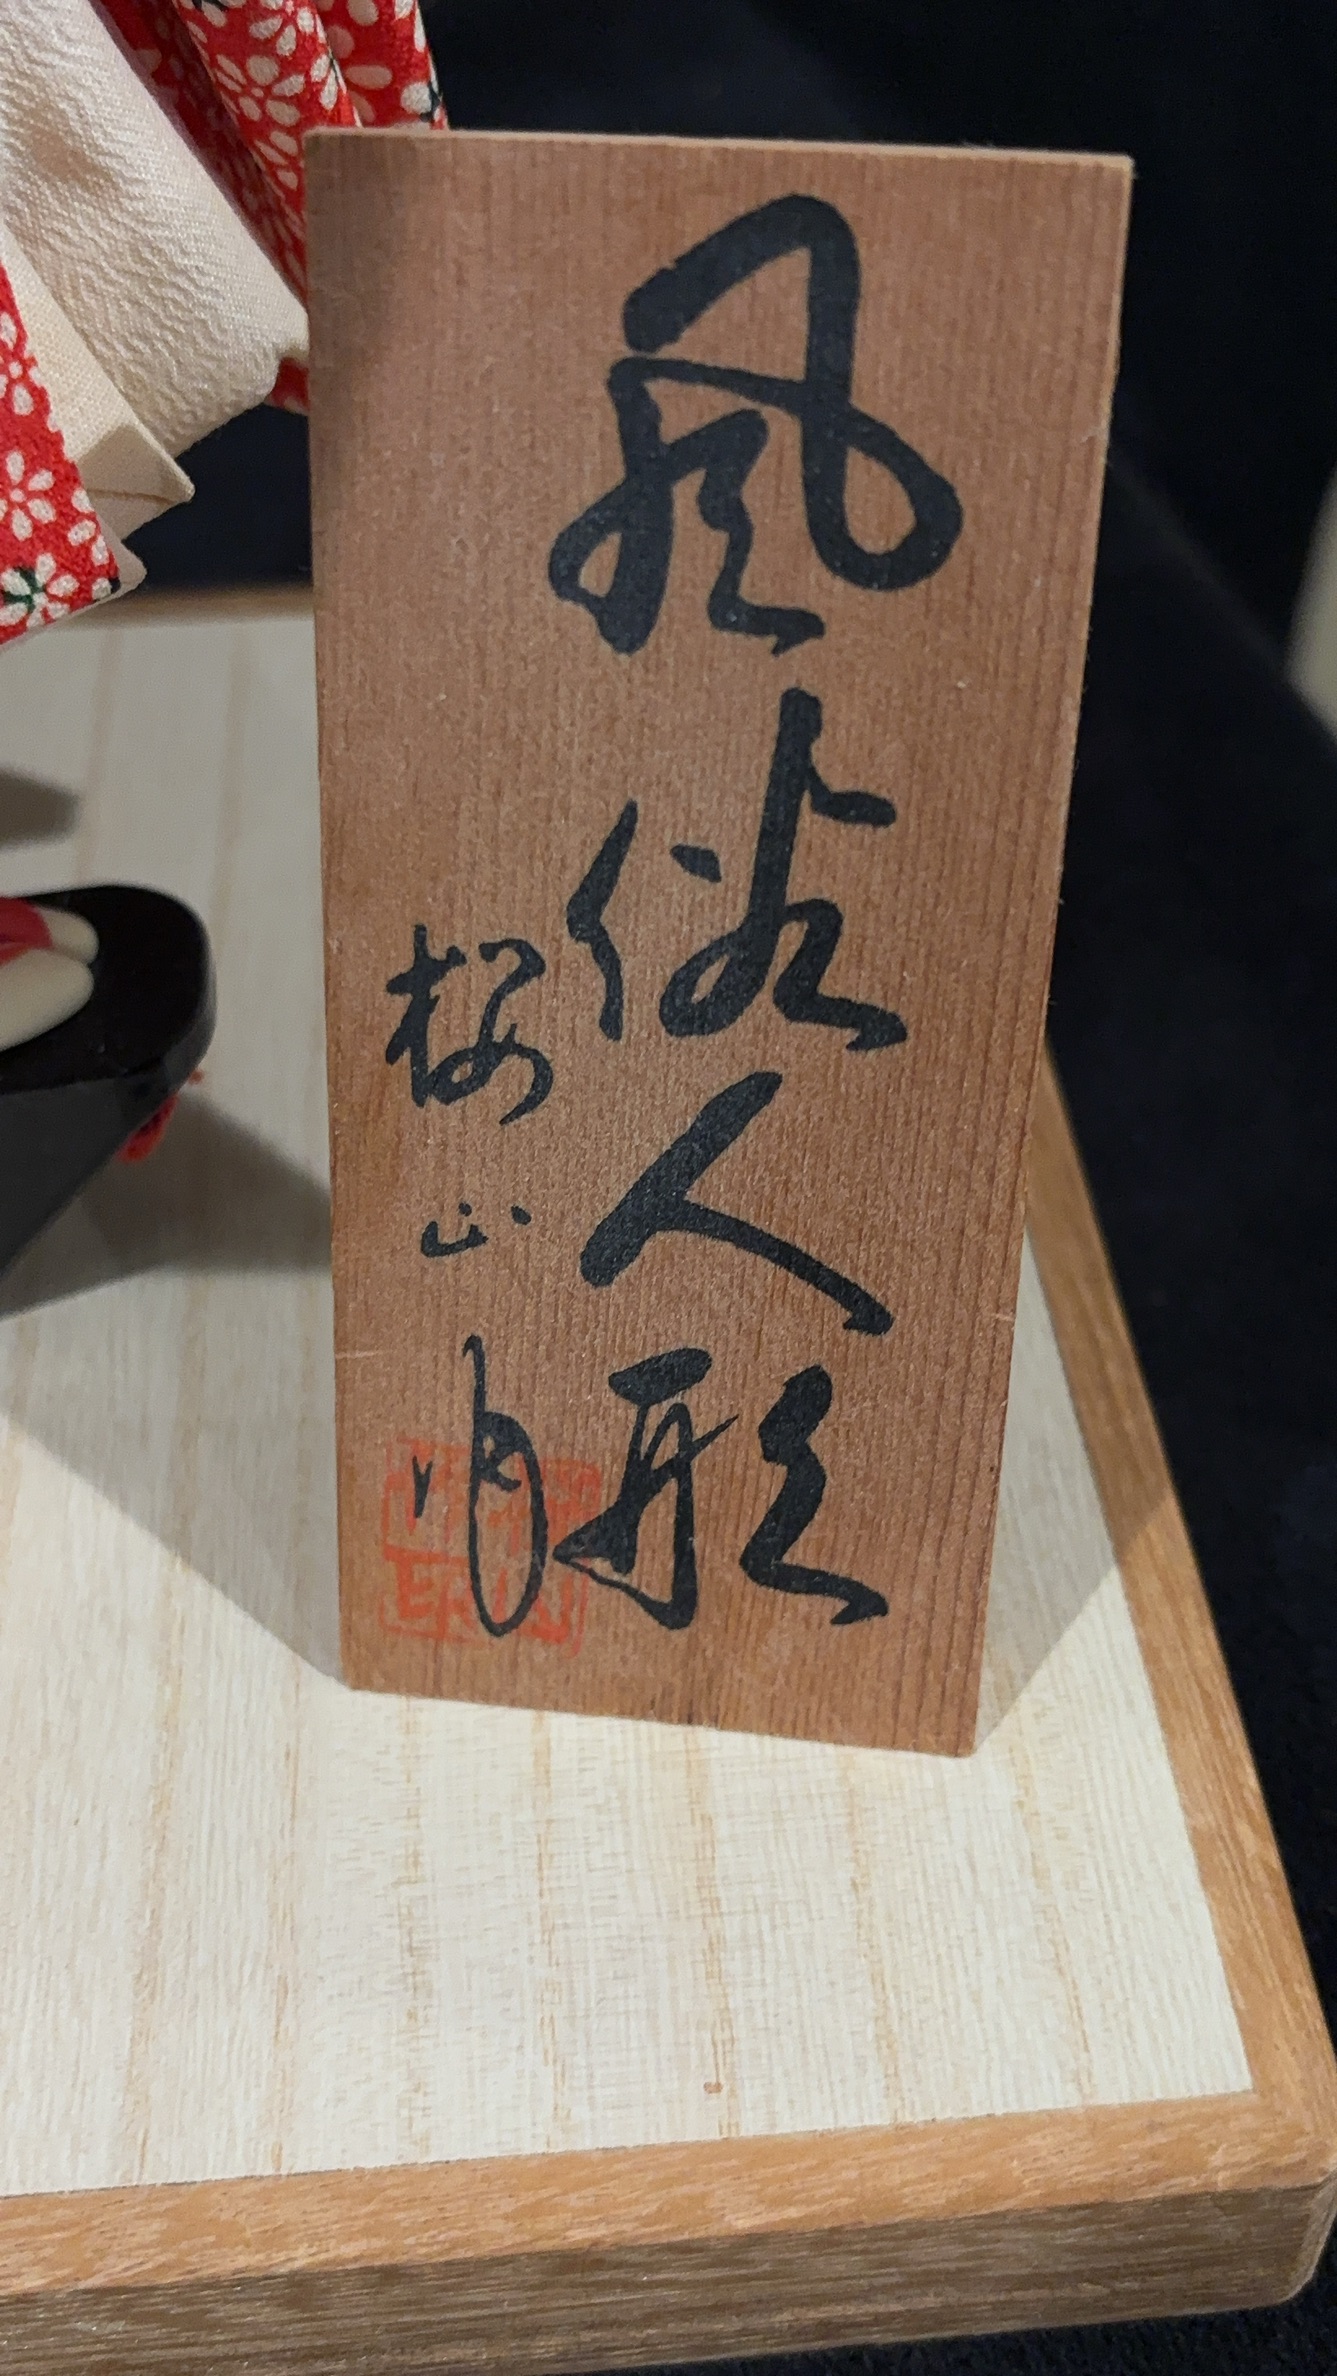 風俗人形
桜山作